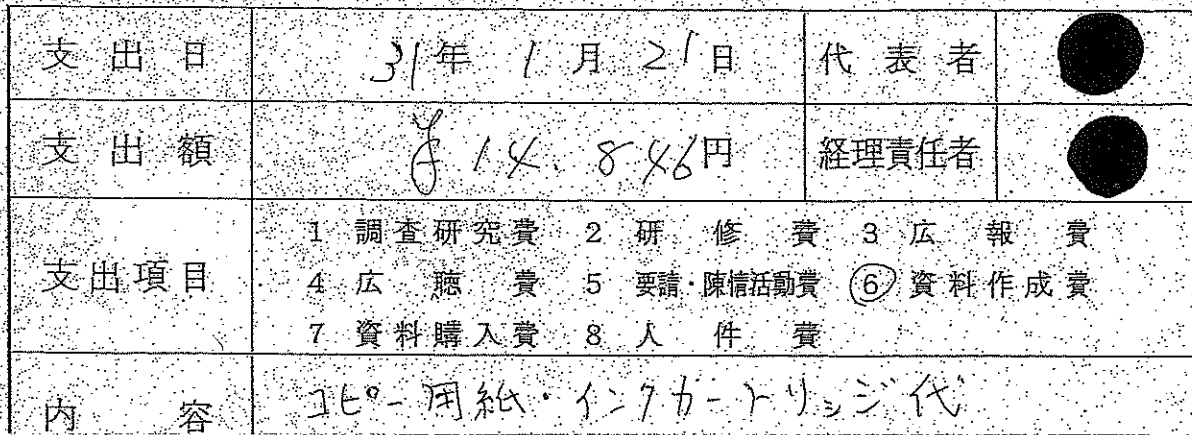 支出日 31年1月21日 代表者
支出額 ¥14.846円 経理責任者
支出項目 1 調査研究費 2 研修費 3 広報費
4 広聴費 5 要請・陳情活動費 ⑥ 資料作成費
7 資料購入費 8 人件費
内容 コピー用紙・インクカートリッジ代